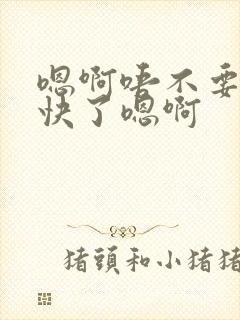 嗯啊唔不要
快了嗯啊
猪頭和小猪猪